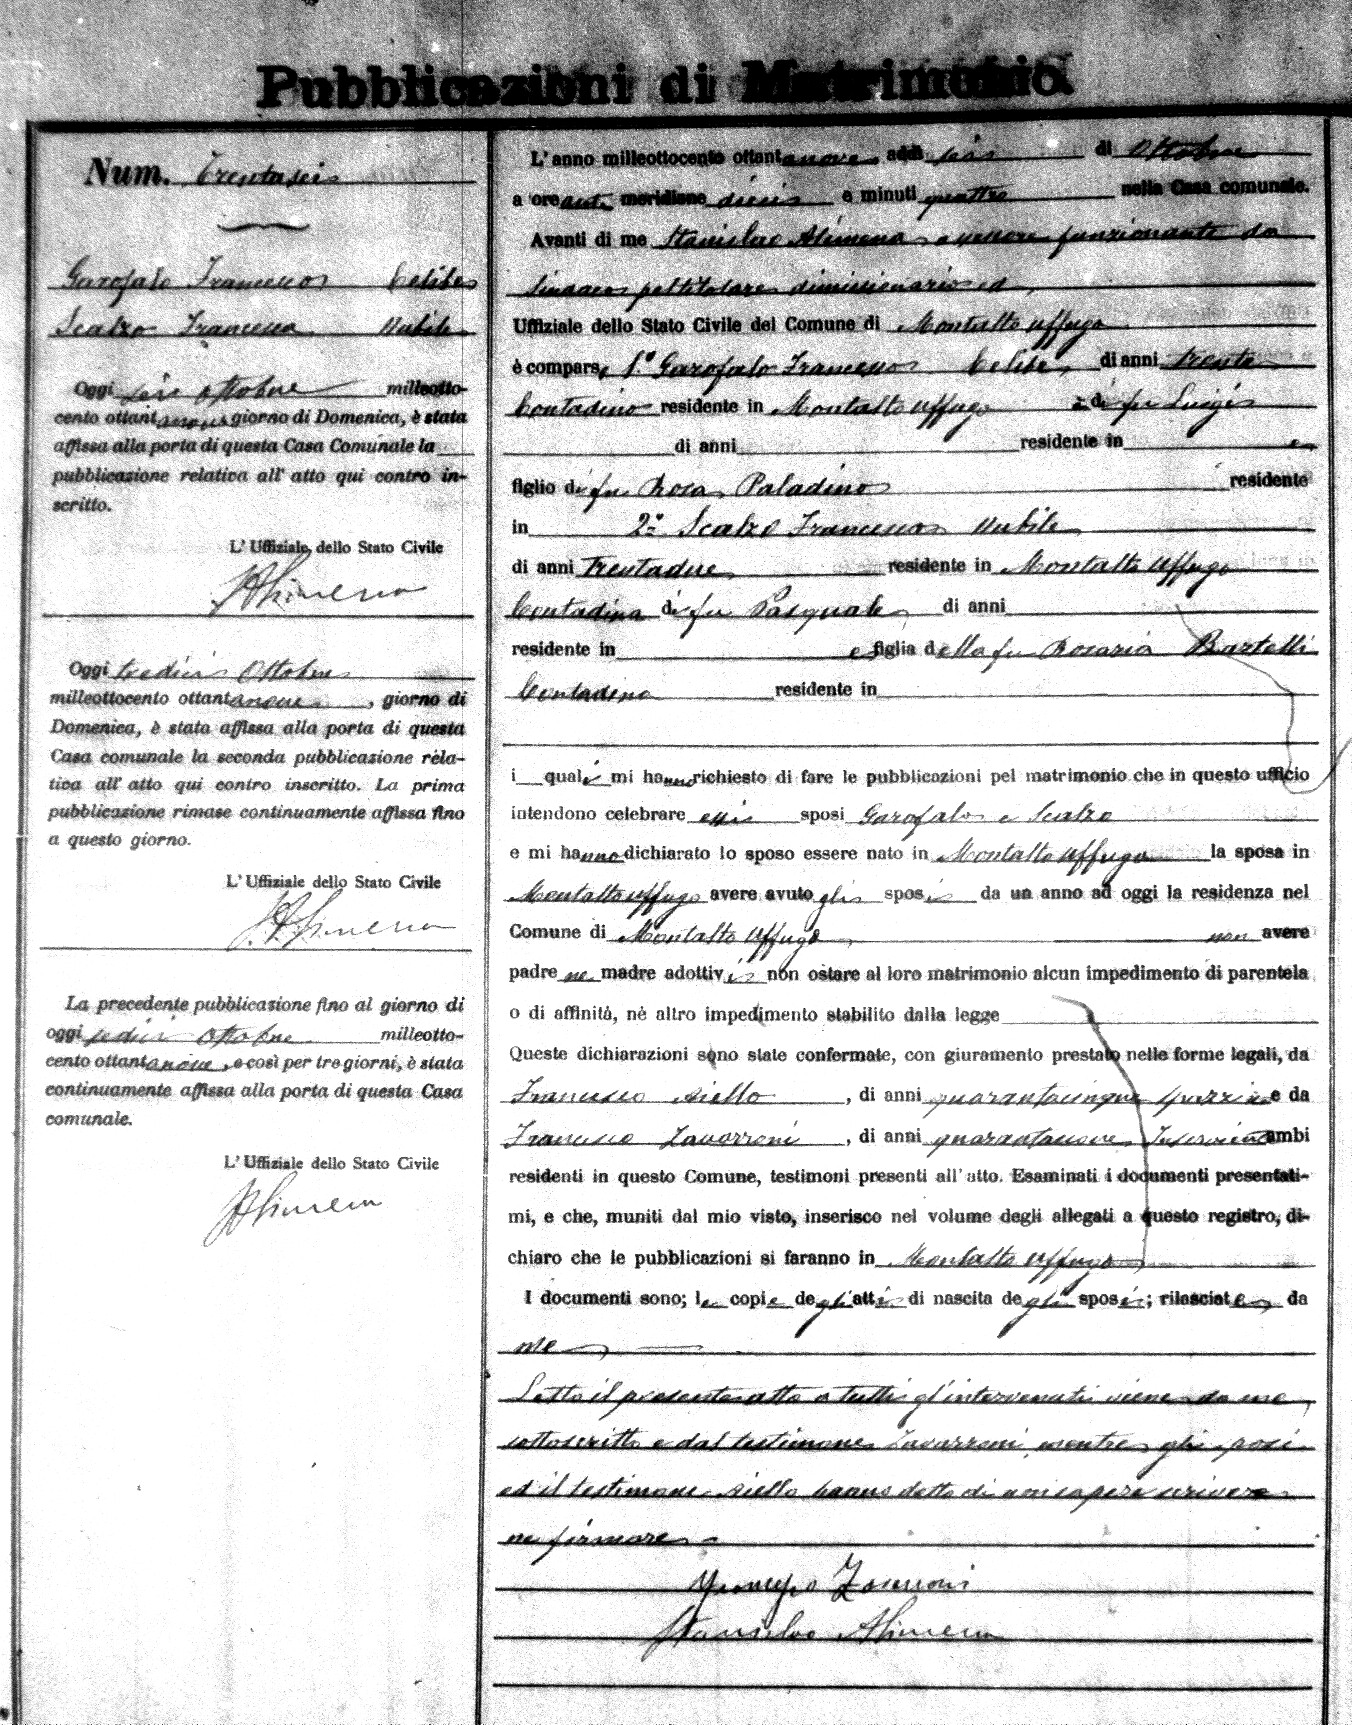 Pubblicazioni di Matrimonio
Num. Trentasei
Garofalo Francesco Celibe
Scalzo Francesca Nubile
Oggi sei ottobre milleotto-
cento ottantanove giorno di Domenica, è stata
affissa alla porta di questa Casa Comunale la
pubblicazione relativa all' atto qui contro in-
scritto.
L' Uffiziale dello Stato Civile
SAlimena
Oggi tredici Ottobre
milleottocento ottantanove, giorno di
Domenica, è stata affissa alla porta di questa
Casa comunale la seconda pubblicazione rela-
tiva all' atto qui contro inscritto. La prima
pubblicazione rimase continuamente affissa fino
a questo giorno.
L' Uffiziale dello Stato Civile
SAlimena
La precedente pubblicazione fino al giorno di
oggi sedici ottobre milleotto-
cento ottantanove, e così per tre giorni, è stata
continuamente affissa alla porta di questa Casa
comunale.
L' Uffiziale dello Stato Civile
SAlimena
L' anno milleottocento ottantanove, addì sei di Ottobre
a ore anti meridiane dieci e minuti quattro nella Casa comunale.
Avanti di me Stanislao Alimena assessore funzionante da
Sindaco pel titolare dimissionario ed
Uffiziale dello Stato Civile del Comune di Montalto Uffugo
è comparso 1.° Garofalo Francesco Celibe di anni trenta
Contadino residente in Montalto Uffugo di fu Luigi
di anni residente in e
figlio di fu Rosa Paladino residente
in 2° Scalzo Francesca nubile
di anni Trentadue residente in Montalto Uffugo
Contadina di fu Pasquale di anni
residente in e figlia della fu Rosaria Bartelli
Contadina residente in
i quali mi hanno richiesto di fare le pubblicazioni pel matrimonio che in questo ufficio
intendono celebrare essi sposi Garofalo e Scalzo
e mi hanno dichiarato lo sposo essere nato in Montalto Uffugo la sposa in
Montalto Uffugo avere avuto gli sposi da un anno ad oggi la residenza nel
Comune di Montalto Uffugo non avere
padre ne madre adottivi non ostare al loro matrimonio alcun impedimento di parentela
o di affinità, nè altro impedimento stabilito dalla legge
Queste dichiarazioni sono state confermate, con giuramento prestato nelle forme legali, da
Francesco Aiello, di anni quarantacinque e da
Francesco Zavarroni, di anni quarantanove Inserviente ambi
residenti in questo Comune, testimoni presenti all' atto. Esaminati i documenti presentati-
mi, e che, muniti dal mio visto, inserisco nel volume degli allegati a questo registro, di-
chiaro che le pubblicazioni si faranno in Montalto Uffugo
I documenti sono; le copie degli atti di nascita degli sposi; rilasciate, da
me
Letto il presente atto a tutti gl'intervenuti viene da me
sottoscritto e dal testimone Zavarroni mentre gli sposi
ed il testimone Aiello hanno detto di non sapere scrivere
ne firmare
Francesco Zavarroni
Stanislao Alimena